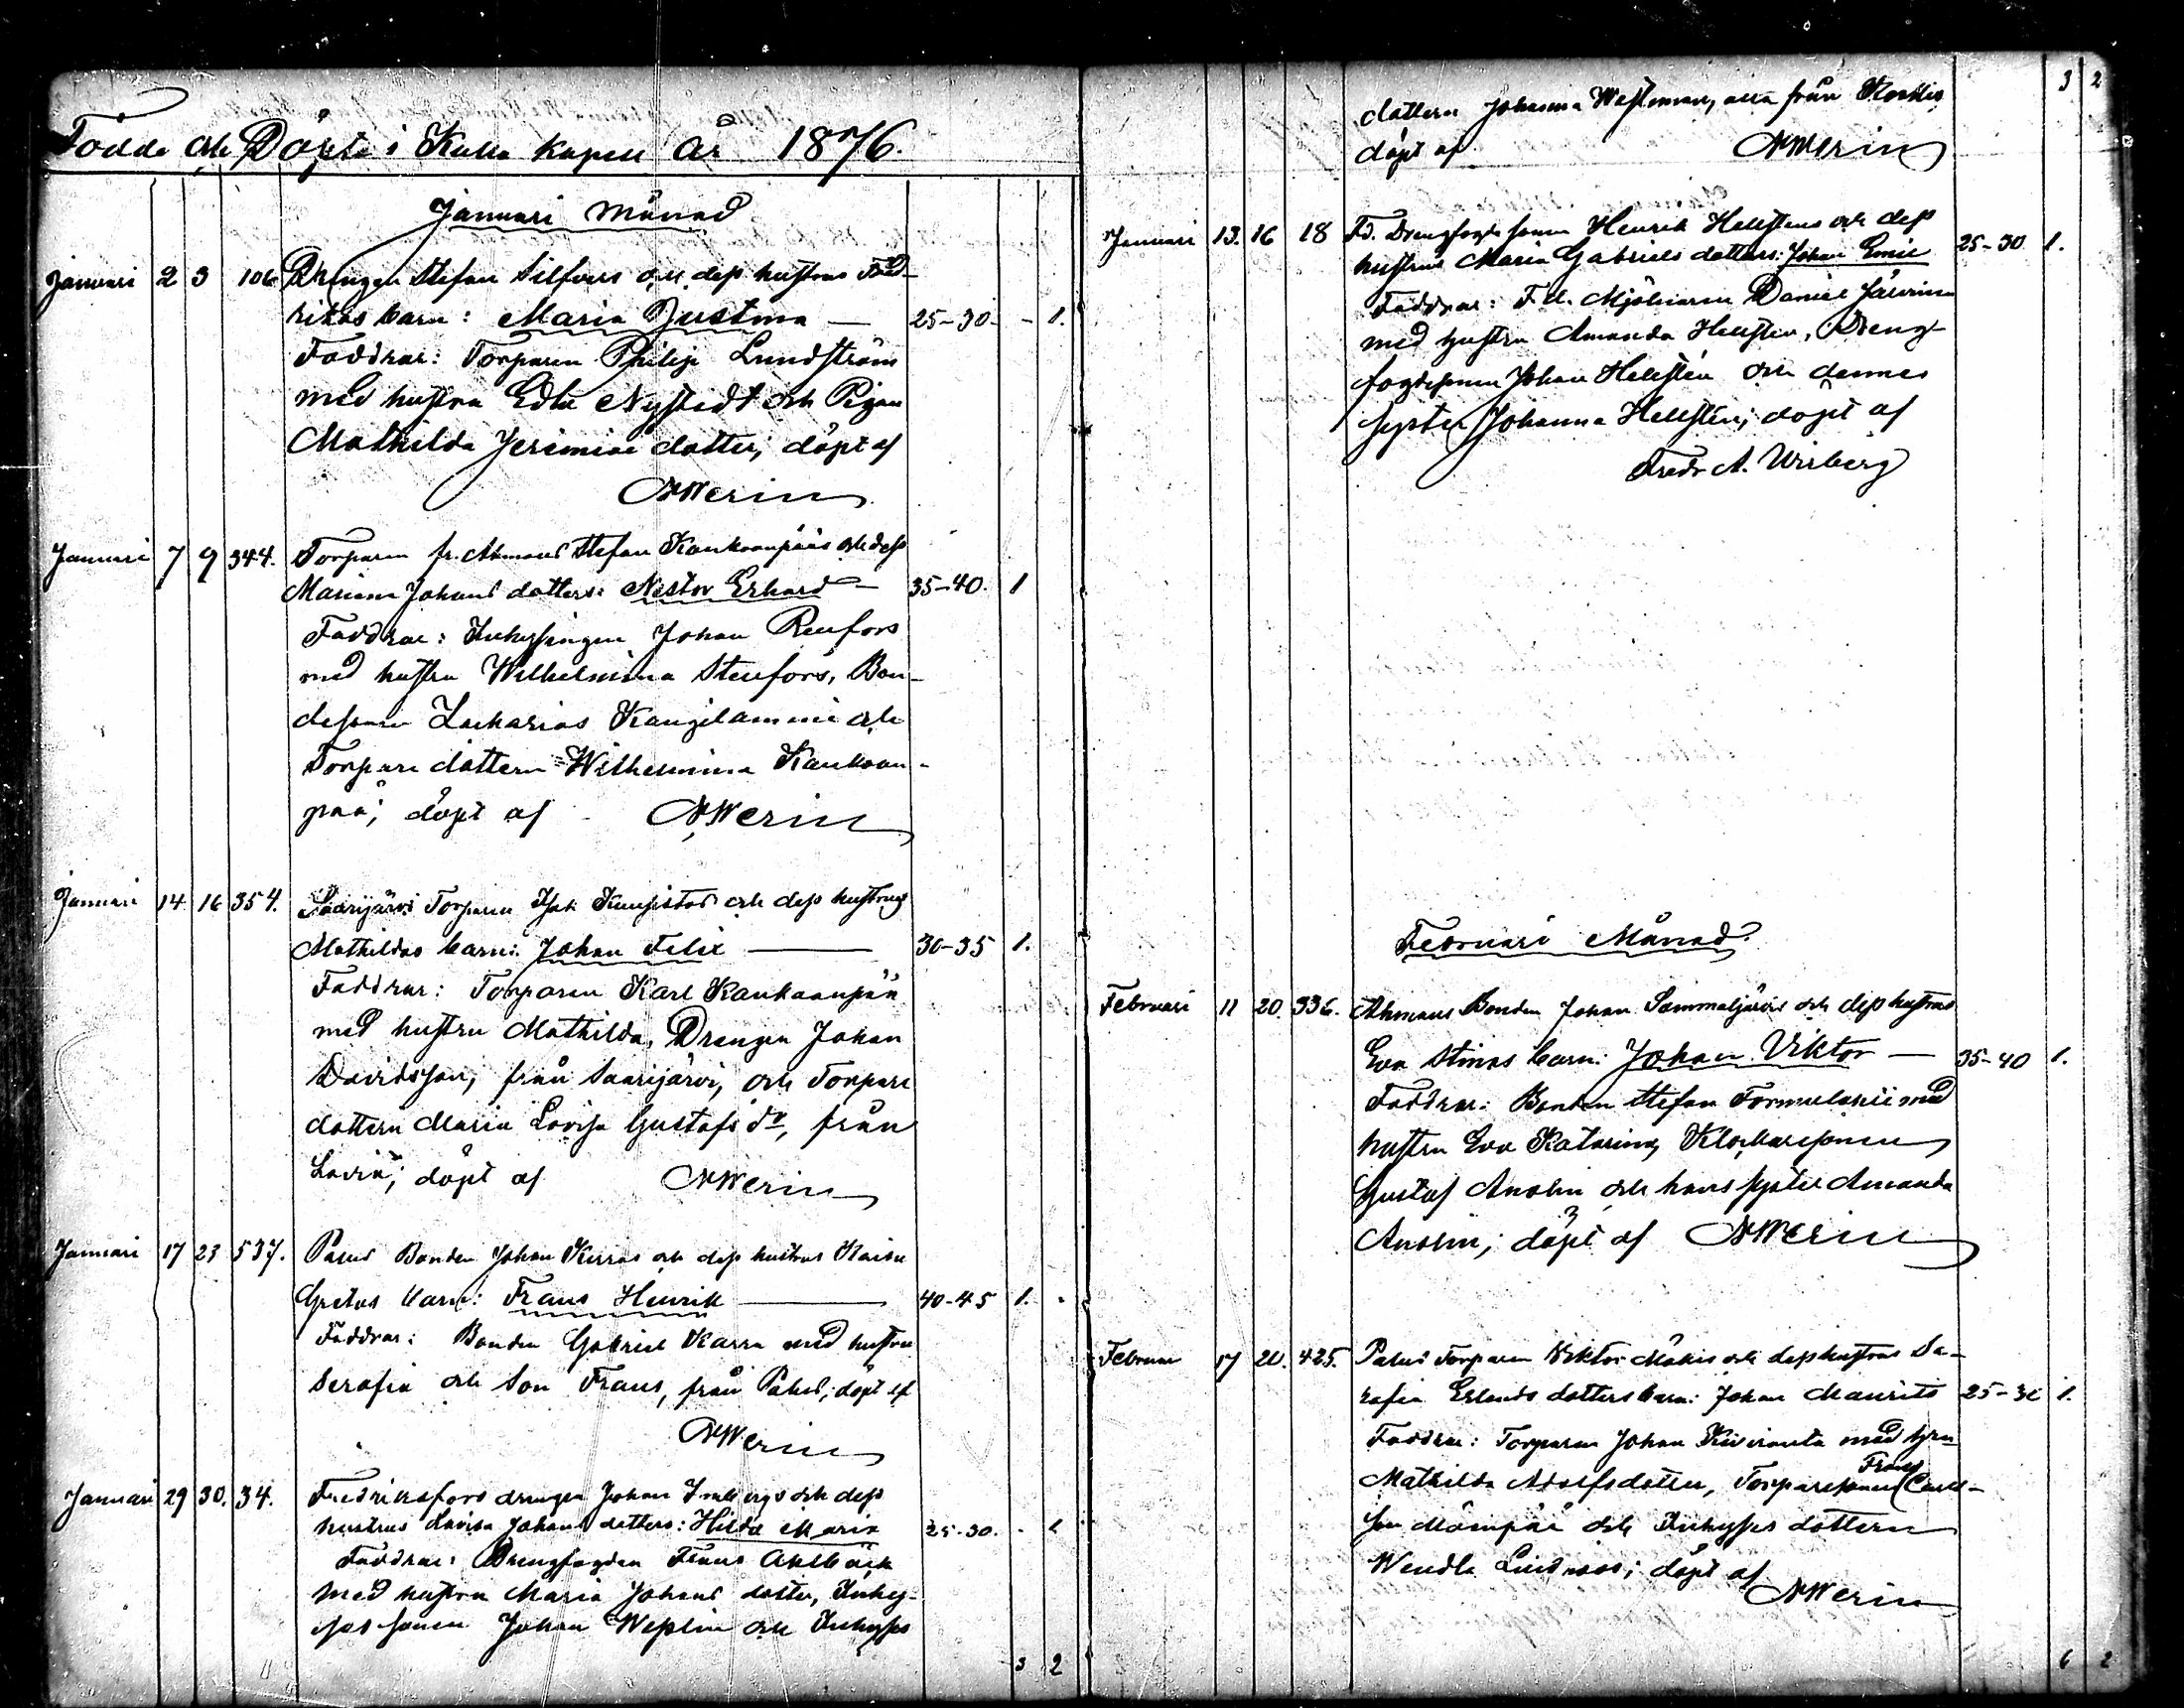 Födde och Döpte i Kulla kapell år 1876.
Januari månad
Januari 2 3 106 Drengen Stefan Silfvers och dess hustrus Fred-
rikas barn: Maria Justina — 25-30 - 1.
Faddrar: Torparen Philip Lundström
med hustru Edla Nystedt och Pigan
Mathilda Jeremiae dotter; döpt af
Werin
Januari 7 9 344. Torparen fr. Ahmaus Stefan Kankaanpääs och dess
Mariana Johans dotters: Nestor Erhard — 35-40. 1
Faddrar: Inhysingen Johan Renfors
med hustru Wilhelmina Stenfors, Bon-
desonen Zackarias Kangilammi och
Torpare dottern Wilhelmina Kankaan-
pää; döpt af Werin
Januari 14 16 354. Saarijärvi Torparen och dess hustrus
Mathildas barn: Johan Felix — 30-35 1.
Faddrar: Torparen Karl Kankaanpää
med hustru Mathilda, Drengen Johan
Davidsson, från Saarijärvi, och Torpare
dottern Maria Lovisa Gustafs dr, från
Lavia; döpt af Werin
Januari 17 23 537. Palus Bonden Johan Kurras och dess hustrus Kaisa
Gretas barn: Frans Henrik — 40-45 1.
Faddrar: Bonden Gabriel Karra med hustru
Serafia och Son Frans, från Palus; döpt af
Werin
Januari 29 30. 34. Fredriksfors drengen Johan och dess
hustrus Lovisa Johans dotters: Hilda Maria 25-30. -
Faddrar: Drengfogden Frans Ahlbäck
med hustru Maria Johans dotter, Inhy-
ses sonen Johan Weplin och Inhyses
3 2
3 2
dottern Johanna Westman, alla från
döpt af Werin
Januari 13. 16 18 Fd. Drengfogde sonen Henrik Hellstens och dess
hustrus Maria Gabriels dotters: Johan Emil 25-30 1.
Faddrar: F.d. Mjölnaren Daniel
med hustru Amanda Hellsten, Dreng-
fogdesonen Johan Hellstén och dennes
syster Johanna Hellstén; döpt af
Fredr A. Wriberg
Februari Månad.
Februari 11 20. 336. Ahmaus Bonden Johan Sammaljärvis och dess hustrus
Eva Stinas barn: Johan Viktor — 35-40 1.
Faddrar: Bonden Stefan med
hustru Eva Katarina, Klockaresonen
Gustaf Anolin och hans syster Amanda
Anolin; döpt af Werin
Februari 17 20. 425. Palus Torparen Viktor Mäkis och dess hustrus Se-
rafia Erlands dotters barn: Johan Maurits 25-30 1.
Faddrar: Torparen Johan Kiviranta med hru
Mathilda Adolfsdotter, Torparesonen Frans Carls-
son och Inhyses dottern
Wendla Lindroos; döpt af
Werin
6 2